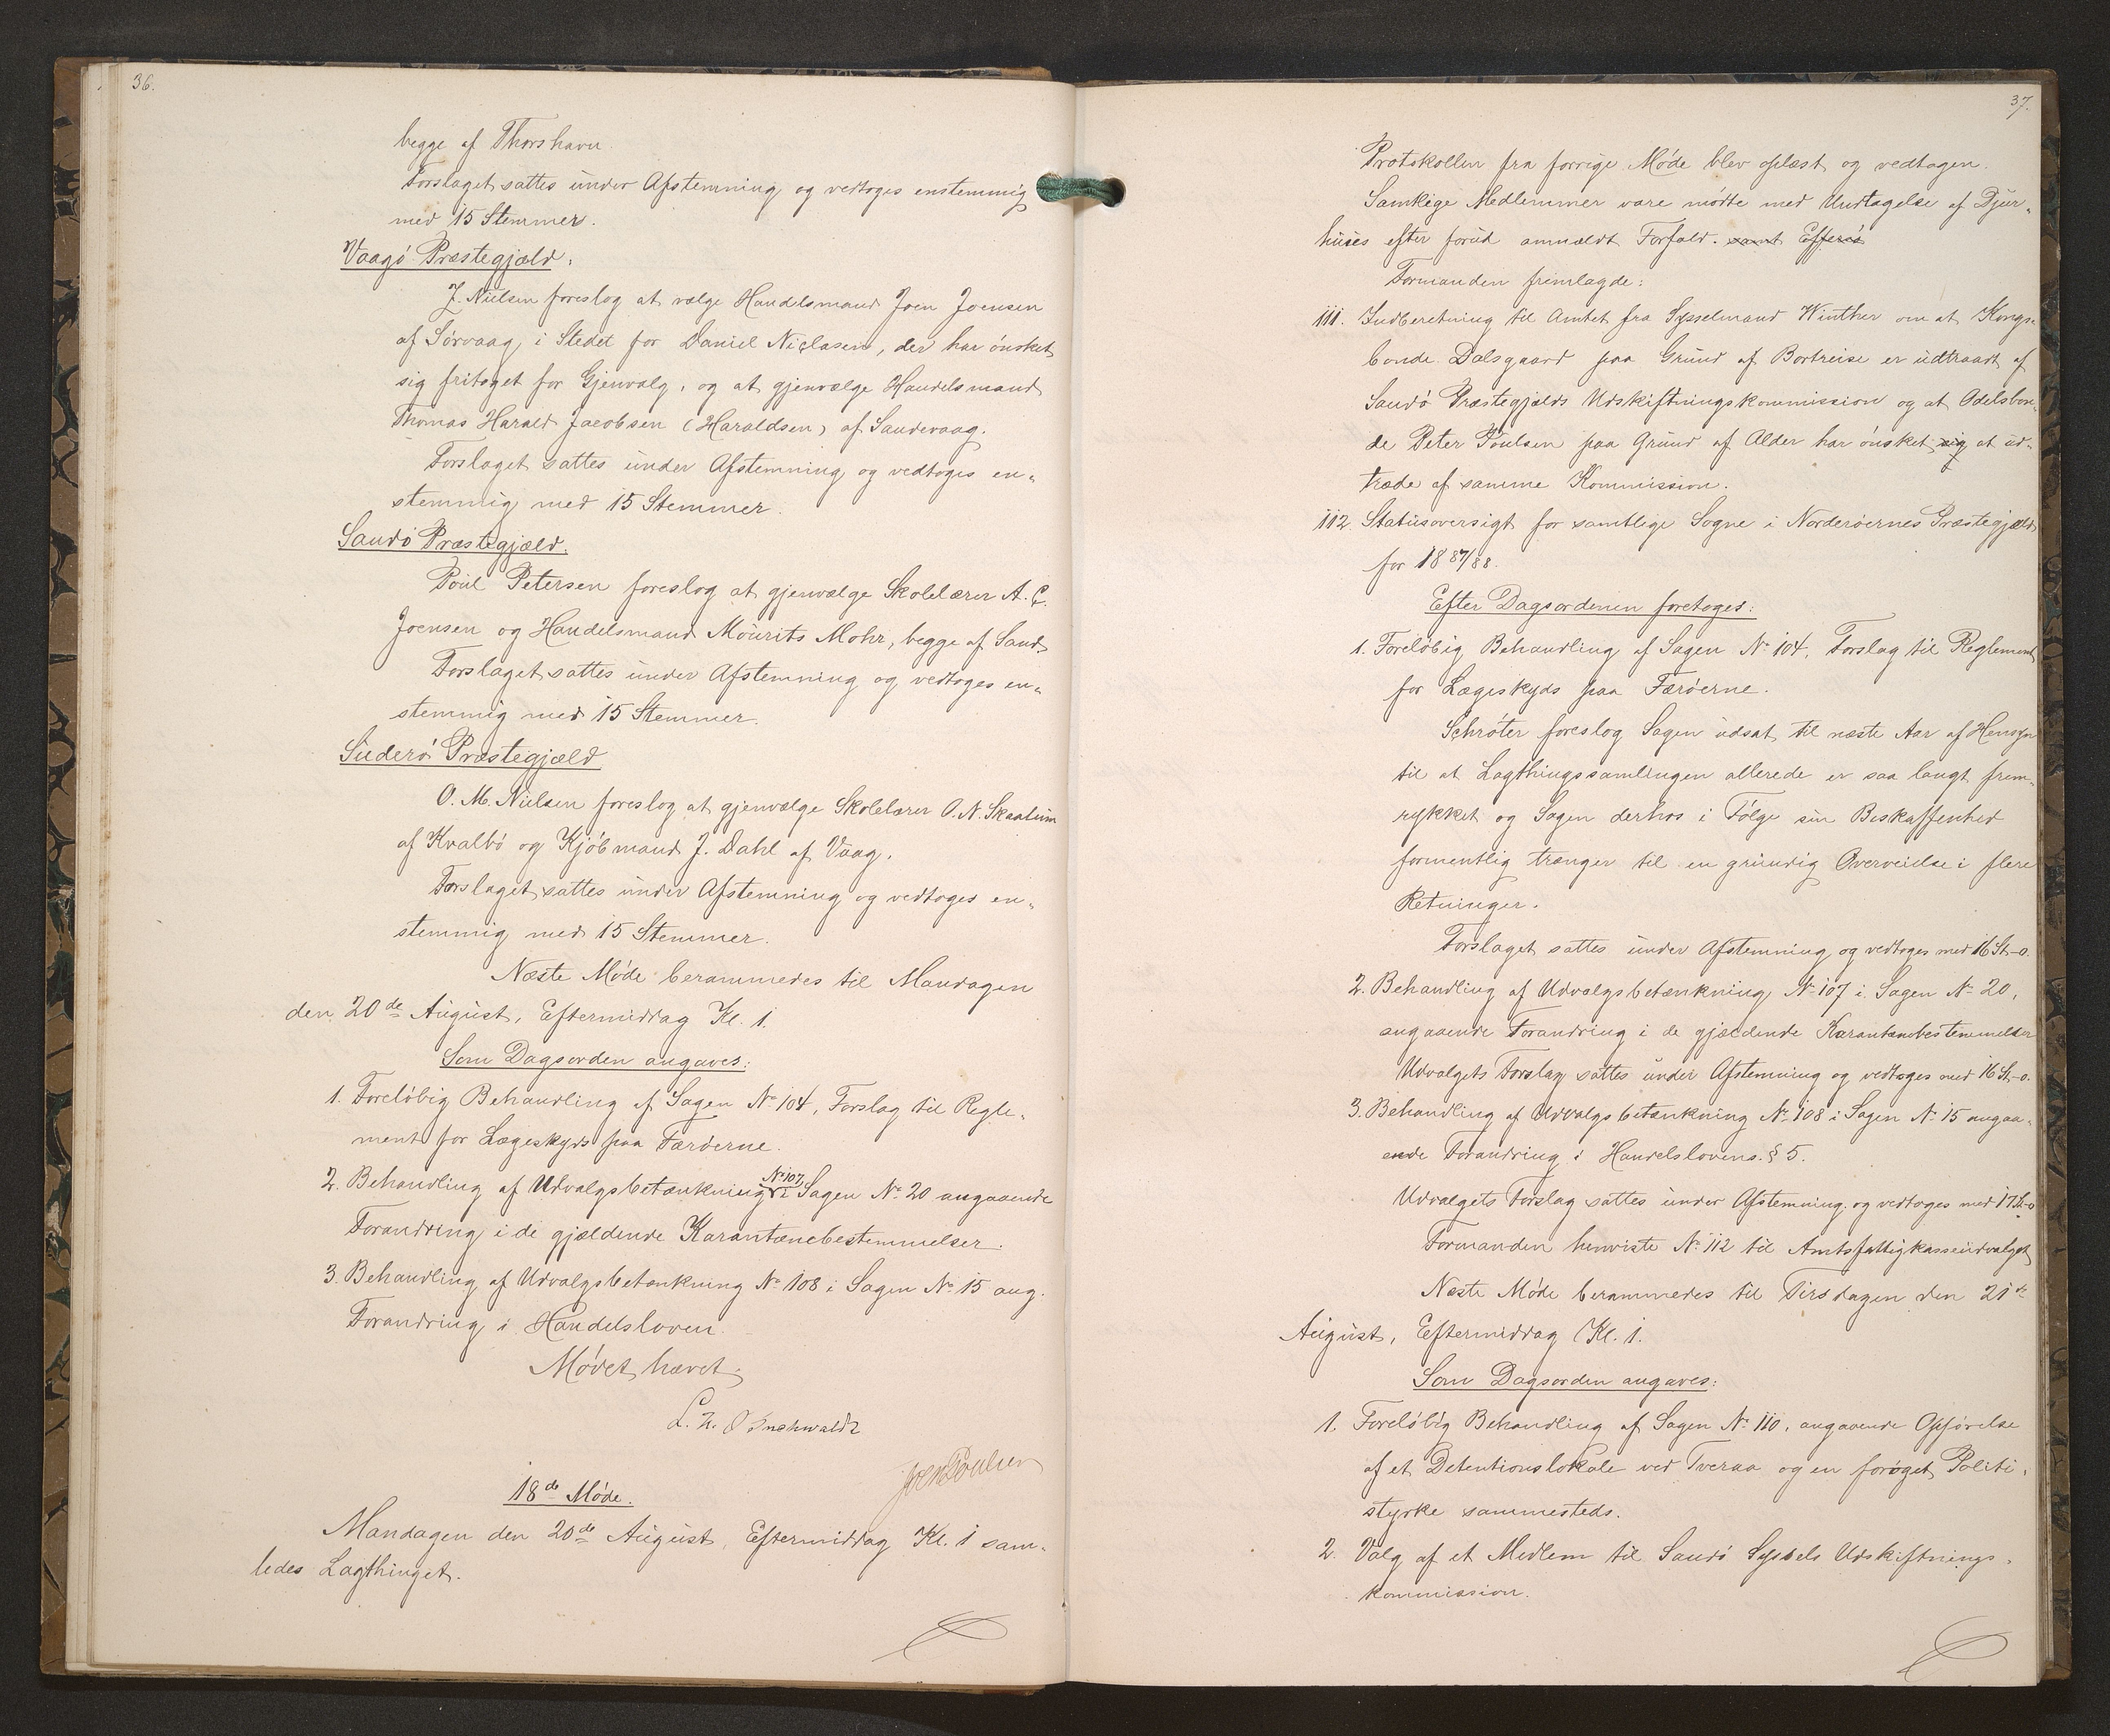 36.
begge af Thorshavn.
Forslaget sattes under Afstemning og vedtoges enstemmig
med 15 Stemmer.
Vaagø Præstegjæld.
J. Nielsen foreslog at vælge Handelsmand Joen Joensen
af Sørvaag i Stedet for Daniel Niclasen, der har ønsket
sig fritaget for Gjenvalg, og at gjenvælge Handelsmand
Thomas Harald Jacobsen (Haraldsen) af Sandevaag.
Forslaget sattes under Afstemning og vedtoges en-
stemmig med 15 Stemmer.
Sandø Præstegjæld.
Poul Petersen foreslog at gjenvælge Skolelærer A. C.
Joensen og Handelsmand Mourits Mohr, begge af Sand.
Forslaget sattes under Afstemning og vedtoges en-
stemmig med 15 Stemmer.
Suderø Præstegjæld
O. M. Nielsen foreslog at gjenvælge Skolelærer O. N. Skaalum
af Kvalbø og Kjøbmand J. Dahl af Vaag.
Forslaget sattes under Afstemning og vedtoges en-
stemmig med 15 Stemmer.
Næste Møde berammedes til Mandagen
den 20de August, Eftermiddag Kl. 1.
Som Dagsorden angaves:
1. Foreløbig Behandling af Sagen No 104, Forslag til Regle-
ment for Lægeskyds paa Færøerne.
2. Behandling af Udvalgsbetænkning No 107 i Sagen No 20 angaaende
Forandring i de gjældende Karantænebestemmelser.
3. Behandling af Udvalgsbetænkning No 108 i Sagen No 15 ang.
Forandring i Handelsloven.
Mødet hævet.
Joen Poulsen
18de Møde.
Mandagen den 20de August, Eftermiddag Kl. 1 sam-
ledes Lagthinget.
37.
Protokollen fra forrige Møde blev oplæst og vedtagen.
Samtlige Medlemmer vare mødte med Undtagelse af Djur-
huus efter forud anmeldt Forfald. samt Effersø
Formanden fremlagde:
111. Indberetning til Amtet fra Sysselmand Winther om at Kongs-
bonde Dalsgaard paa Grund af Bortreise er udtraadt af
Sandø Præstegjælds Udskiftningskommission og at Odelsbon-
de Peter Poulsen paa Grund af Alder har ønsket sig at ud-
træde af samme Kommission.
112. Statusoversigt for samtlige Sogne i Norderøernes Præstegjæld
for 1887/88.
Efter Dagsordenen foretoges:
1. Foreløbig Behandling af Sagen No 104, Forslag til Reglement
for Lægeskyds paa Færøerne.
Schrøter foreslog Sagen udsat til næste Aar af Hensyn
til at Lagthingssamlingen allerede er saa langt frem-
rykket og Sagen derhos i Følge sin Beskaffenhed
formentlig trænger til en grundig Overveielse i flere
Retninger.
Forslaget sattes under Afstemning og vedtoges med 16 St.-0.
2. Behandling af Udvalgsbetænkning No 107 i Sagen No 20,
angaaende Forandring i de gjældende Karantænebestemmelser
Udvalgets Forslag sattes under Afstemning og vedtoges med 16 St.-0.
3. Behandling af Udvalgsbetænkning No 108 i Sagen No 15 angaa-
ende Forandring i Handelslovens § 5.
Udvalgets Forslag sattes under Afstemning og vedtoges med 17 St.-0
Formanden henviste No 112 til Amtsfattigkasseudvalget
Næste Møde berammedes til Tirsdagen den 21de
August, Eftermiddag Kl. 1.
Som Dagsorden angaves:
1. Foreløbig Behandling af Sagen No 110, angaaende Opførelse
af et Detentionslokale ved Tveraa og en forøget Politi-
styrke sammesteds.
2. Valg af et Medlem til Sandø Syssels Udskiftnings-
kommission.